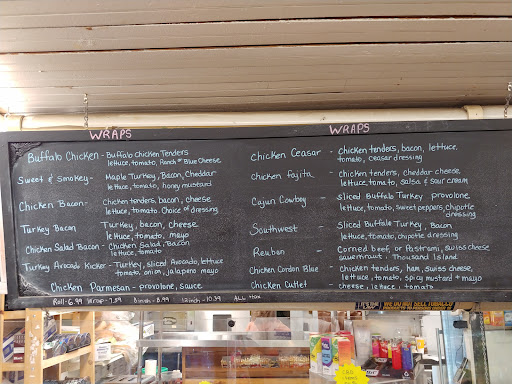 WRAPS
Buffalo Chicken - Buffalo Chicken Tenders
lettuce, tomato, Ranch or Blue Cheese
Sweet & Smokey - Maple Turkey, Bacon, Cheddar
lettuce, tomato, honey mustard
Chicken Bacon - Chicken tenders, bacon, cheese
lettuce, tomato. Choice of dressing
Turkey Bacon Turkey, bacon, cheese
lettuce, tomato, mayo
Chicken Salad Bacon - Chicken Salad, Bacon
lettuce, tomato
Turkey Avocado Kicker - Turkey, sliced Avocado, lettuce
tomato, onion, jalapeno mayo
Chicken Parmesan - provolone, sauce
Roll - 6.99 Wrap - 7.59 8.99 10.39 ALL
WRAPS
Chicken Ceasar - chicken tenders, bacon, lettuce,
tomato, ceasar dressing
Chicken fajita - chicken tenders, cheddar cheese,
lettuce, tomato, salsa & sour cream
Cajun Cowboy - sliced Buffalo Turkey provolone
lettuce, tomato, sweet peppers, chipotle
dressing
Southwest - Sliced Buffalo Turkey, Bacon
lettuce, tomato, chipotle dressing
Reuban - Corned beef, or Pastrami, swiss cheese
sauerkraut, Thousand Island
Chicken Cordon Blue - Chicken tenders, ham, swiss cheese,
lettuce, tomato, spicy mustard + mayo
Chicken Cutlet - cheese, lettuce, tomato
WE DO NOT SELL TOBACCO